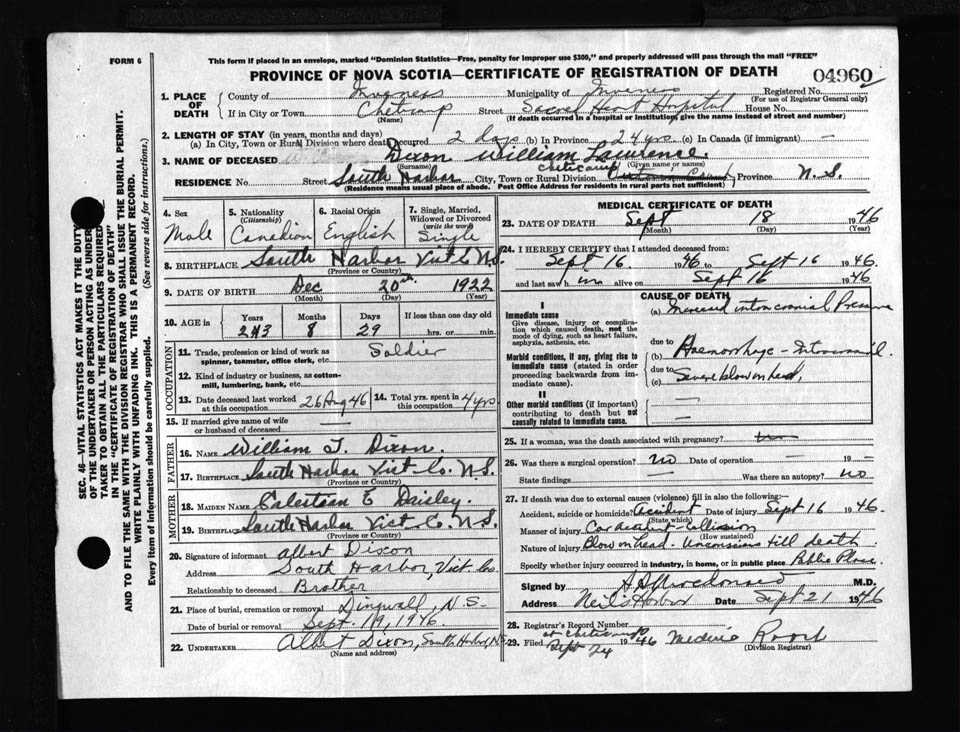 FORM 6
This form if placed in an envelope, marked "Dominion Statistics—Free, penalty for improper use $300," and properly addressed will pass through the mail "FREE"
PROVINCE OF NOVA SCOTIA—CERTIFICATE OF REGISTRATION OF DEATH
04960
1. PLACE OF DEATH
County of Inverness Municipality of Inverness Registered No.
(For use of Registrar General only)
If in City or Town Cheticamp Street Sacred Heart Hospital House No.
(Name) (If death occurred in a hospital or institution, give the name instead of street and number)
2. LENGTH OF STAY (in years, months and days)
(a) In City, Town or Rural Division where death occurred 2 days (b) In Province 24 yrs (c) In Canada (if immigrant) —
3. NAME OF DECEASED Dixon William Lawrence
(Surname) (Given name or names)
RESIDENCE No. Street South Harbor City, Town or Rural Division Cheticamp Province N.S.
(Residence means usual place of abode. Post Office Address for residents in rural parts not sufficient)
4. Sex Male
5. Nationality (Citizenship) Canadian
6. Racial Origin English
7. Single, Married, Widowed or Divorced (write the word) Single
8. BIRTHPLACE South Harbor Vict Co N.S.
(Province or Country)
9. DATE OF BIRTH Dec 20th 1922
(Month) (Day) (Year)
10. AGE in Years 23 Months 8 Days 29 If less than one day old hrs. or min.
OCCUPATION
11. Trade, profession or kind of work as spinner, teamster, office clerk, etc. Soldier
12. Kind of industry or business, as cotton-mill, lumbering, bank, etc.
13. Date deceased last worked at this occupation 26 Aug 46
14. Total yrs. spent in this occupation 4 yrs.
15. If married give name of wife or husband of deceased —
FATHER
16. NAME William T. Dixon.
17. BIRTHPLACE South Harbor Vict Co. N.S.
(Province or Country)
MOTHER
18. MAIDEN NAME E Daisley.
19. BIRTHPLACE South Harbor Vict Co N.S.
(Province or Country)
20. Signature of informant Albert Dixon
Address South Harbor, Vict Co.
Relationship to deceased Brother
21. Place of burial, cremation or removal Dingwall, N.S.
Date of burial or removal Sept. 19, 1946
22. UNDERTAKER Albert Dixon, South Harbor, N.S.
(Name and address)
MEDICAL CERTIFICATE OF DEATH
23. DATE OF DEATH Sept 18 1946
(Month) (Day) (Year)
24. I HEREBY CERTIFY that I attended deceased from:
Sept 16 1946 to Sept 16 1946.
and last saw him alive on Sept 16 1946
CAUSE OF DEATH
I
Immediate cause
Give disease, injury or complication which caused death, not the mode of dying, such as heart failure, asphyxia, asthenia, etc.
(a) Increased intracranial Pressure
due to
Morbid conditions, if any, giving rise to immediate cause (stated in order proceeding backwards from immediate cause).
(b) Haemorrhage - Intracranial.
due to
(c) Severe blow on head.
II
Other morbid conditions (if important) contributing to death but not causally related to immediate cause.
25. If a woman, was the death associated with pregnancy?
26. Was there a surgical operation? no Date of operation —
State findings — Was there an autopsy? no
27. If death was due to external causes (violence) fill in also the following:—
Accident, suicide or homicide? Accident Date of injury Sept 16 1946.
(State which)
Manner of injury Car accident - Collission
(How sustained)
Nature of injury Blow on head. Unconsious till death
Specify whether injury occurred in industry, in home, or in public place Public Place.
Signed by M.D.
Address Neil's Harbor Date Sept 21 1946
28. Registrar's Record Number
29. Filed at Cheticamp Sept 24 1946
(Division Registrar)
SEC. 46—VITAL STATISTICS ACT MAKES IT THE DUTY
OF THE UNDERTAKER OR PERSON ACTING AS UNDERTAKER TO OBTAIN ALL THE PARTICULARS REQUIRED
IN THE "CERTIFICATE OF REGISTRATION OF DEATH"
AND TO FILE THE SAME WITH THE DIVISION REGISTRAR WHO SHALL ISSUE THE BURIAL PERMIT.
WRITE PLAINLY WITH UNFADING INK. THIS IS A PERMANENT RECORD.
Every item of information should be carefully supplied. (See reverse side for instructions.)